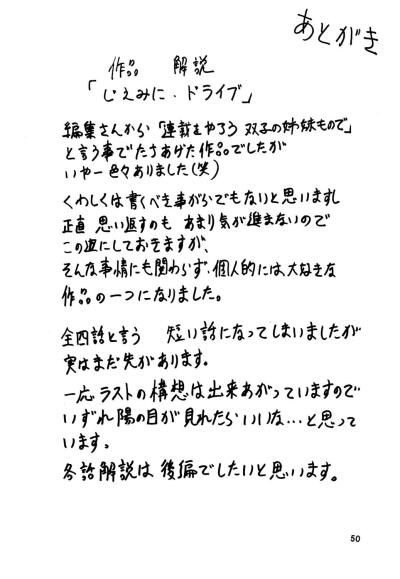 あとがき
作品 解説
「じえみに・ドライブ」
編集さんから「連載をやろう 双子の姉妹もので」
と言う事でたちあげた作品でしたが
いやー色々ありました(笑)
くわしくは書くべき事がらでもないと思いますし
正直 思い返すのも あまり気が進まないので
この辺にしておきますが、
そんな事情にも関わらず、個人的には、大好きな
作品の一つになりました。
全四話と言う 短い話になってしまいましたが
実はまだ先があります。
一応ラストの構想は出来あがっていますので
いずれ陽の目が見れたらいいな…と思って
います。
各話解説は後編でしたいと思います。
50